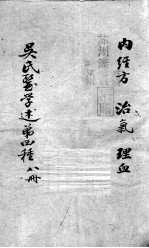 內經方 治氣 理血
吳氏醫學述第四種 八冊